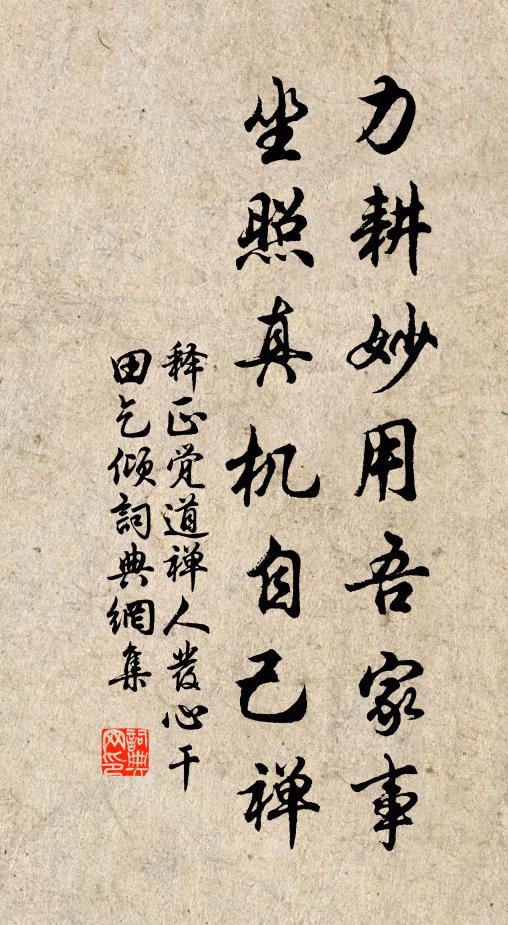 力耕妙用吾家事
坐照真机自己禅
释正觉道禅人发心干
田乞倾詞典網集
詞典
网印